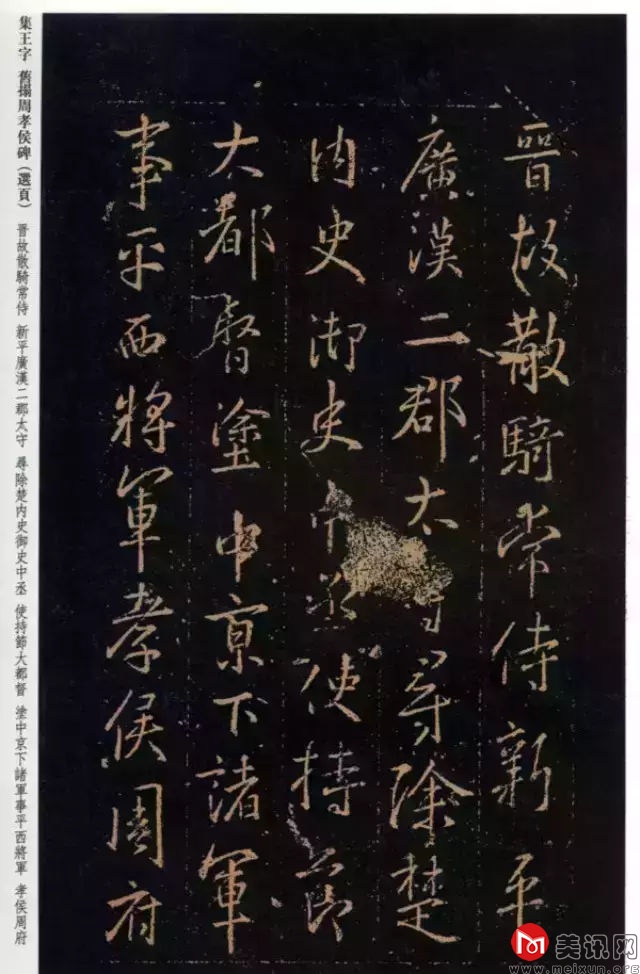 集王字 舊搨周孝侯碑(選頁) 晋故散騎常侍 新平廣漢二郡太守 尋除楚内史御史中丞 使持節大都督 塗中京下諸軍事平西將軍 孝侯周府
晋故散騎常侍新平
廣漢二郡太守尋除楚
内史御史中丞使持節
大都督塗中京下諸軍
事平西將軍孝侯周府
美讯网
www.meixun.org